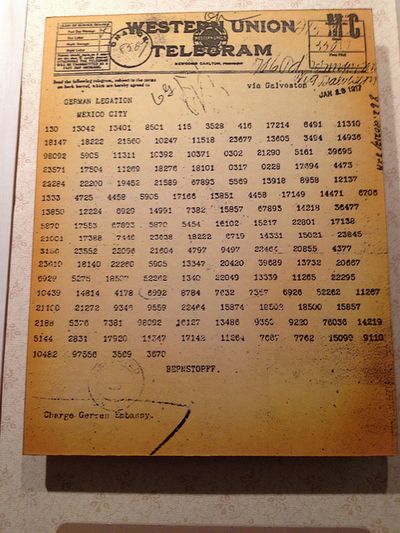 WESTERN UNION
TELEGRAM
NEWCOMB CARLTON, PRESIDENT
Send the following telegram, subject to the terms
on back hereof, which are hereby agreed to
via Galveston
JAN 19 1917
GERMAN LEGATION
MEXICO CITY
130 13042 13401 8501 115 3528 416 17214 6491 11310
18147 18222 21560 10247 11518 23677 13605 3494 14936
98092 5905 11311 10392 10371 0302 21290 5161 39695
23571 17504 11269 18276 18101 0317 0228 17694 4473
22284 22200 19452 21589 67893 5569 13918 8958 12137
1333 4725 4458 5905 17166 13851 4458 17149 14471 6706
13850 12224 6929 14991 7382 15857 67893 14218 36477
5870 17553 67893 5870 5454 16102 15217 22801 17138
21001 17388 7446 23638 18222 6719 14331 15021 23845
3156 23552 22096 21604 4797 9497 22464 20855 4377
23610 18140 22260 5905 13347 20420 39689 13732 20667
6929 5275 18507 52262 1340 22049 13339 11265 22295
10439 14814 4178 6992 8784 7632 7357 6926 52262 11267
21100 21272 9346 9559 22464 15874 18502 18500 15857
2188 5376 7381 98092 16127 13486 9350 9220 76036 14219
5144 2831 17920 11347 17142 11264 7667 7762 15099 9110
10482 97556 3569 3670
BERNSTORFF.
Charge German Embassy.